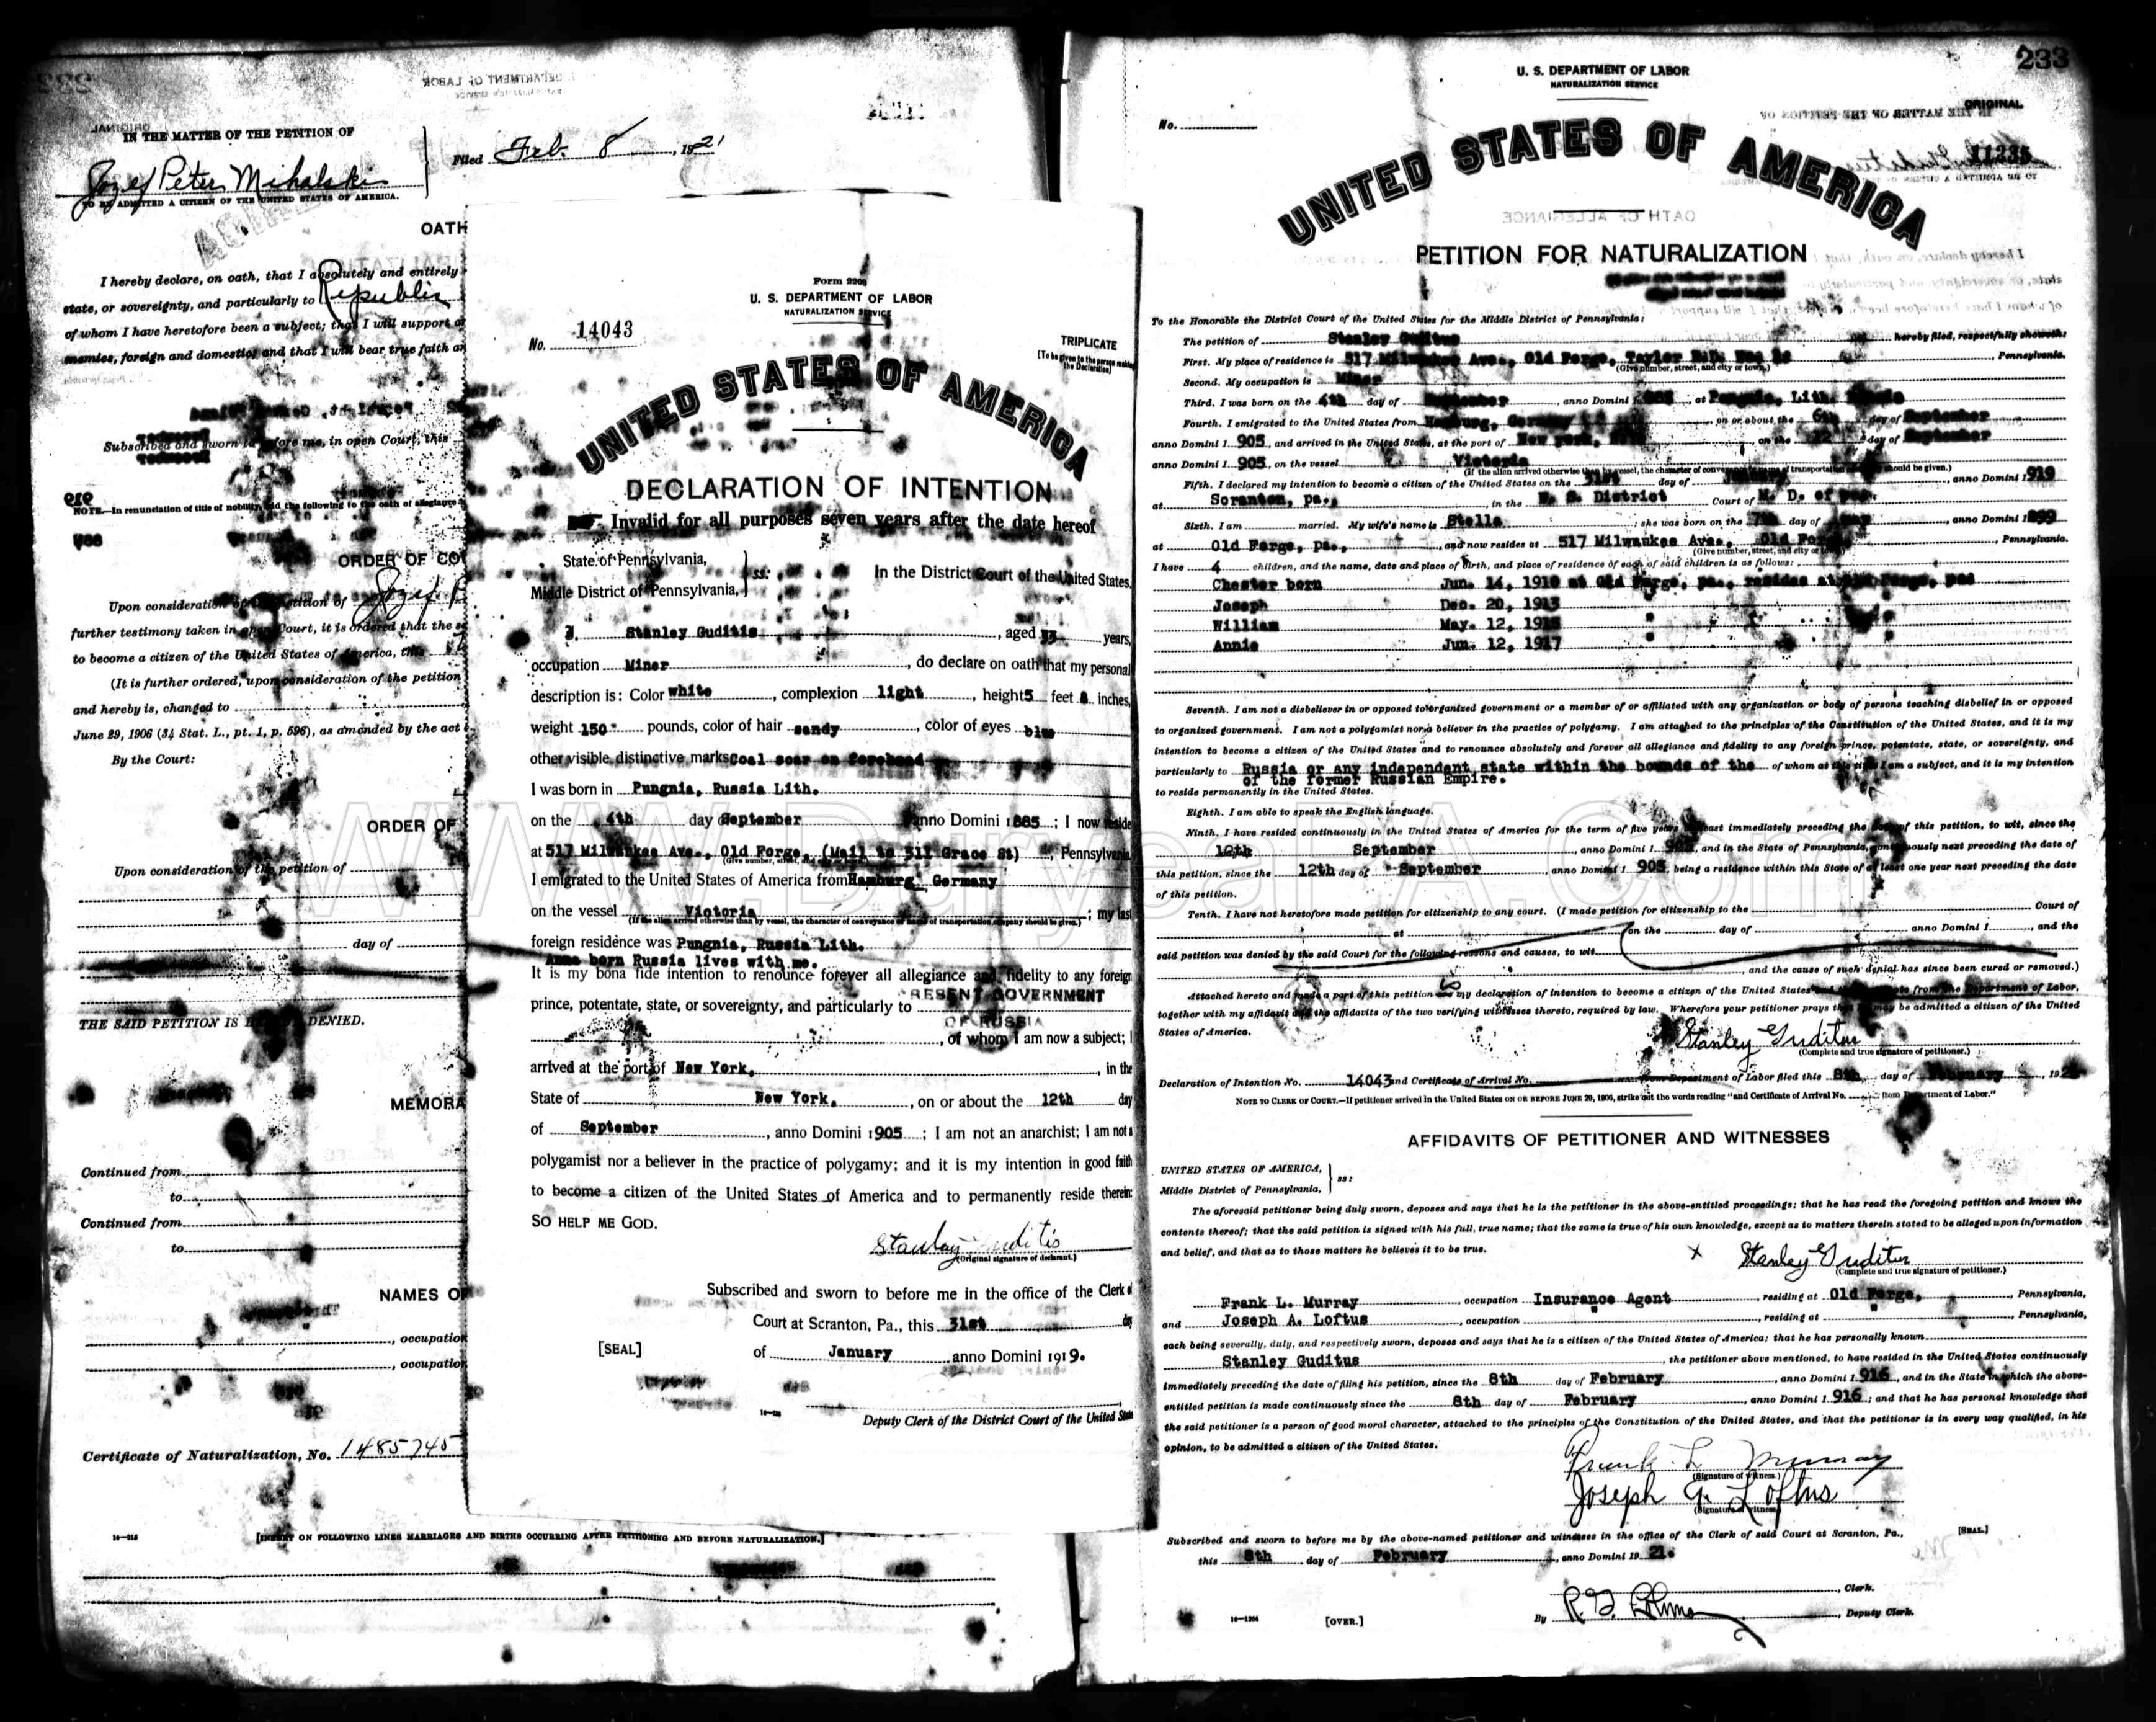 IN THE MATTER OF THE PETITION OF
Jozef Peter Mihalski
TO BE ADMITTED A CITIZEN OF THE UNITED STATES OF AMERICA.
Filed Feb. 8, 1921
OATH
I hereby declare, on oath, that I absolutely and entirely
state, or sovereignty, and particularly to Republic
of whom I have heretofore been a subject; that I will support
enemies, foreign and domestic, and that I will bear true faith
Subscribed and sworn to before me, in open Court, this
NOTE.—In renunciation of title of nobility, add the following to the oath of allegiance
ORDER OF CO
Upon consideration of the petition of Jozef P
further testimony taken in open Court, it is ordered that the
to become a citizen of the United States of America, this
(It is further ordered, upon consideration of the petition
and hereby is, changed to
June 29, 1906 (34 Stat. L., pt. 1, p. 596), as amended by the act
By the Court:
ORDER OF
Upon consideration of the petition of
day of
THE SAID PETITION IS HEREBY DENIED.
MEMORA
Continued from
to
Continued from
to
NAMES OF
, occupation
, occupation
Certificate of Naturalization, No. 1485745
[INSERT ON FOLLOWING LINES MARRIAGES AND BIRTHS OCCURRING AFTER PETITIONING AND BEFORE NATURALIZATION.]
Form 2203
U. S. DEPARTMENT OF LABOR
NATURALIZATION SERVICE
No. 14043
TRIPLICATE
[To be given to the person making the Declaration]
UNITED STATES OF AMERICA
DECLARATION OF INTENTION
Invalid for all purposes seven years after the date hereof
State of Pennsylvania,
Middle District of Pennsylvania,
ss:
In the District Court of the United States.
I, Stanley Guditis, aged 33 years,
occupation Miner, do declare on oath that my personal
description is: Color white, complexion light, height 5 feet inches,
weight 150 pounds, color of hair sandy, color of eyes blue
other visible distinctive marks Coal scar on forehead
I was born in Pungnia, Russia Lith.
on the 4th day of September anno Domini 1885; I now reside
at 517 Milwaukee Ave., Old Forge, (Mail to 311 Grace St), Pennsylvania
(Give number, street, and city or town.)
I emigrated to the United States of America from Hamburg, Germany
on the vessel Victoria; my last
(If the alien arrived otherwise than by vessel, the character of conveyance or name of transportation company should be given.)
foreign residence was Pungnia, Russia Lith.
Anna born Russia lives with me.
It is my bona fide intention to renounce forever all allegiance and fidelity to any foreign
prince, potentate, state, or sovereignty, and particularly to PRESENT GOVERNMENT
OF RUSSIA
, of whom I am now a subject; I
arrived at the port of New York, in the
State of New York, on or about the 12th day
of September, anno Domini 1905; I am not an anarchist; I am not a
polygamist nor a believer in the practice of polygamy; and it is my intention in good faith
to become a citizen of the United States of America and to permanently reside therein:
SO HELP ME GOD.
Stanley Guditis
(Original signature of declarant.)
Subscribed and sworn to before me in the office of the Clerk of
Court at Scranton, Pa., this 31st day
[SEAL]
of January anno Domini 1919.
Deputy Clerk of the District Court of the United States
233
U. S. DEPARTMENT OF LABOR
NATURALIZATION SERVICE
ORIGINAL
No.
11235
UNITED STATES OF AMERICA
PETITION FOR NATURALIZATION
To the Honorable the District Court of the United States for the Middle District of Pennsylvania:
The petition of Stanley Guditus hereby filed, respectfully showeth:
First. My place of residence is 517 Milwaukee Ave., Old Forge, Taylor, Pennsylvania.
(Give number, street, and city or town.)
Second. My occupation is Miner
Third. I was born on the 4th day of September, anno Domini 1, at Pungnia, Lith. Russia
Fourth. I emigrated to the United States from Hamburg, Germany on or about the 6th day of September
anno Domini 1905, and arrived in the United States, at the port of New York, on the 12 day of September
anno Domini 1905, on the vessel Victoria
(If the alien arrived otherwise than by vessel, the character of conveyance or name of transportation company should be given.)
Fifth. I declared my intention to become a citizen of the United States on the 31st day of January, anno Domini 1919
at Scranton, pa., in the U. S. District Court of M. D. of pa.
Sixth. I am married. My wife's name is Stella; she was born on the day of, anno Domini 1899
at Old Forge, pa., and now resides at 517 Milwaukee Ave., Old Forge, Pennsylvania.
(Give number, street, and city or town.)
I have 4 children, and the name, date and place of birth, and place of residence of each of said children is as follows:
Chester born Jun. 14, 1910 at Old Forge, pa., resides at Old Forge, pa.
Joseph Dec. 20, 1913
William May. 12, 1915
Annie Jun. 12, 1917
Seventh. I am not a disbeliever in or opposed to organized government or a member of or affiliated with any organization or body of persons teaching disbelief in or opposed
to organized government. I am not a polygamist nor a believer in the practice of polygamy. I am attached to the principles of the Constitution of the United States, and it is my
intention to become a citizen of the United States and to renounce absolutely and forever all allegiance and fidelity to any foreign prince, potentate, state, or sovereignty, and
particularly to Russia or any independent state within the bounds of the of whom at this time I am a subject, and it is my intention
of the former Russian Empire.
to reside permanently in the United States.
Eighth. I am able to speak the English language.
Ninth. I have resided continuously in the United States of America for the term of five years at least immediately preceding the date of this petition, to wit, since the
12th September, anno Domini 1905, and in the State of Pennsylvania, continuously next preceding the date of
this petition, since the 12th day of September anno Domini 1905 being a residence within this State of at least one year next preceding the date
of this petition.
Tenth. I have not heretofore made petition for citizenship to any court. (I made petition for citizenship to the Court of
at on the day of anno Domini 1, and the
said petition was denied by the said Court for the following reasons and causes, to wit
, and the cause of such denial has since been cured or removed.)
Attached hereto and made a part of this petition is my declaration of intention to become a citizen of the United States from the Department of Labor,
together with my affidavit and the affidavits of the two verifying witnesses thereto, required by law. Wherefore your petitioner prays that he may be admitted a citizen of the United
States of America.
Stanley Guditus
(Complete and true signature of petitioner.)
Declaration of Intention No. 14043 and Certificate of Arrival No. from Department of Labor filed this 8th day of February, 1921
NOTE TO CLERK OF COURT.—If petitioner arrived in the United States ON OR BEFORE JUNE 29, 1906, strike out the words reading "and Certificate of Arrival No. from Department of Labor."
AFFIDAVITS OF PETITIONER AND WITNESSES
UNITED STATES OF AMERICA,
Middle District of Pennsylvania,
ss:
The aforesaid petitioner being duly sworn, deposes and says that he is the petitioner in the above-entitled proceedings; that he has read the foregoing petition and knows the
contents thereof; that the said petition is signed with his full, true name; that the same is true of his own knowledge, except as to matters therein stated to be alleged upon information
and belief, and that as to those matters he believes it to be true.
X Stanley Guditus
(Complete and true signature of petitioner.)
Frank L. Murray, occupation Insurance Agent, residing at Old Forge, Pennsylvania,
and Joseph A. Loftus, occupation ", residing at ", Pennsylvania,
each being severally, duly, and respectively sworn, deposes and says that he is a citizen of the United States of America; that he has personally known
Stanley Guditus, the petitioner above mentioned, to have resided in the United States continuously
immediately preceding the date of filing his petition, since the 8th day of February, anno Domini 1916, and in the State in which the above-
entitled petition is made continuously since the 8th day of February, anno Domini 1916; and that he has personal knowledge that
the said petitioner is a person of good moral character, attached to the principles of the Constitution of the United States, and that the petitioner is in every way qualified, in his
opinion, to be admitted a citizen of the United States.
Frank L Murray
(Signature of witness.)
Joseph A. Loftus
(Signature of witness.)
Subscribed and sworn to before me by the above-named petitioner and witnesses in the office of the Clerk of said Court at Scranton, Pa.,
[SEAL.]
this 8th day of February, anno Domini 1921.
, Clerk.
By, Deputy Clerk.
[OVER.]
www.DuryeaPA.com